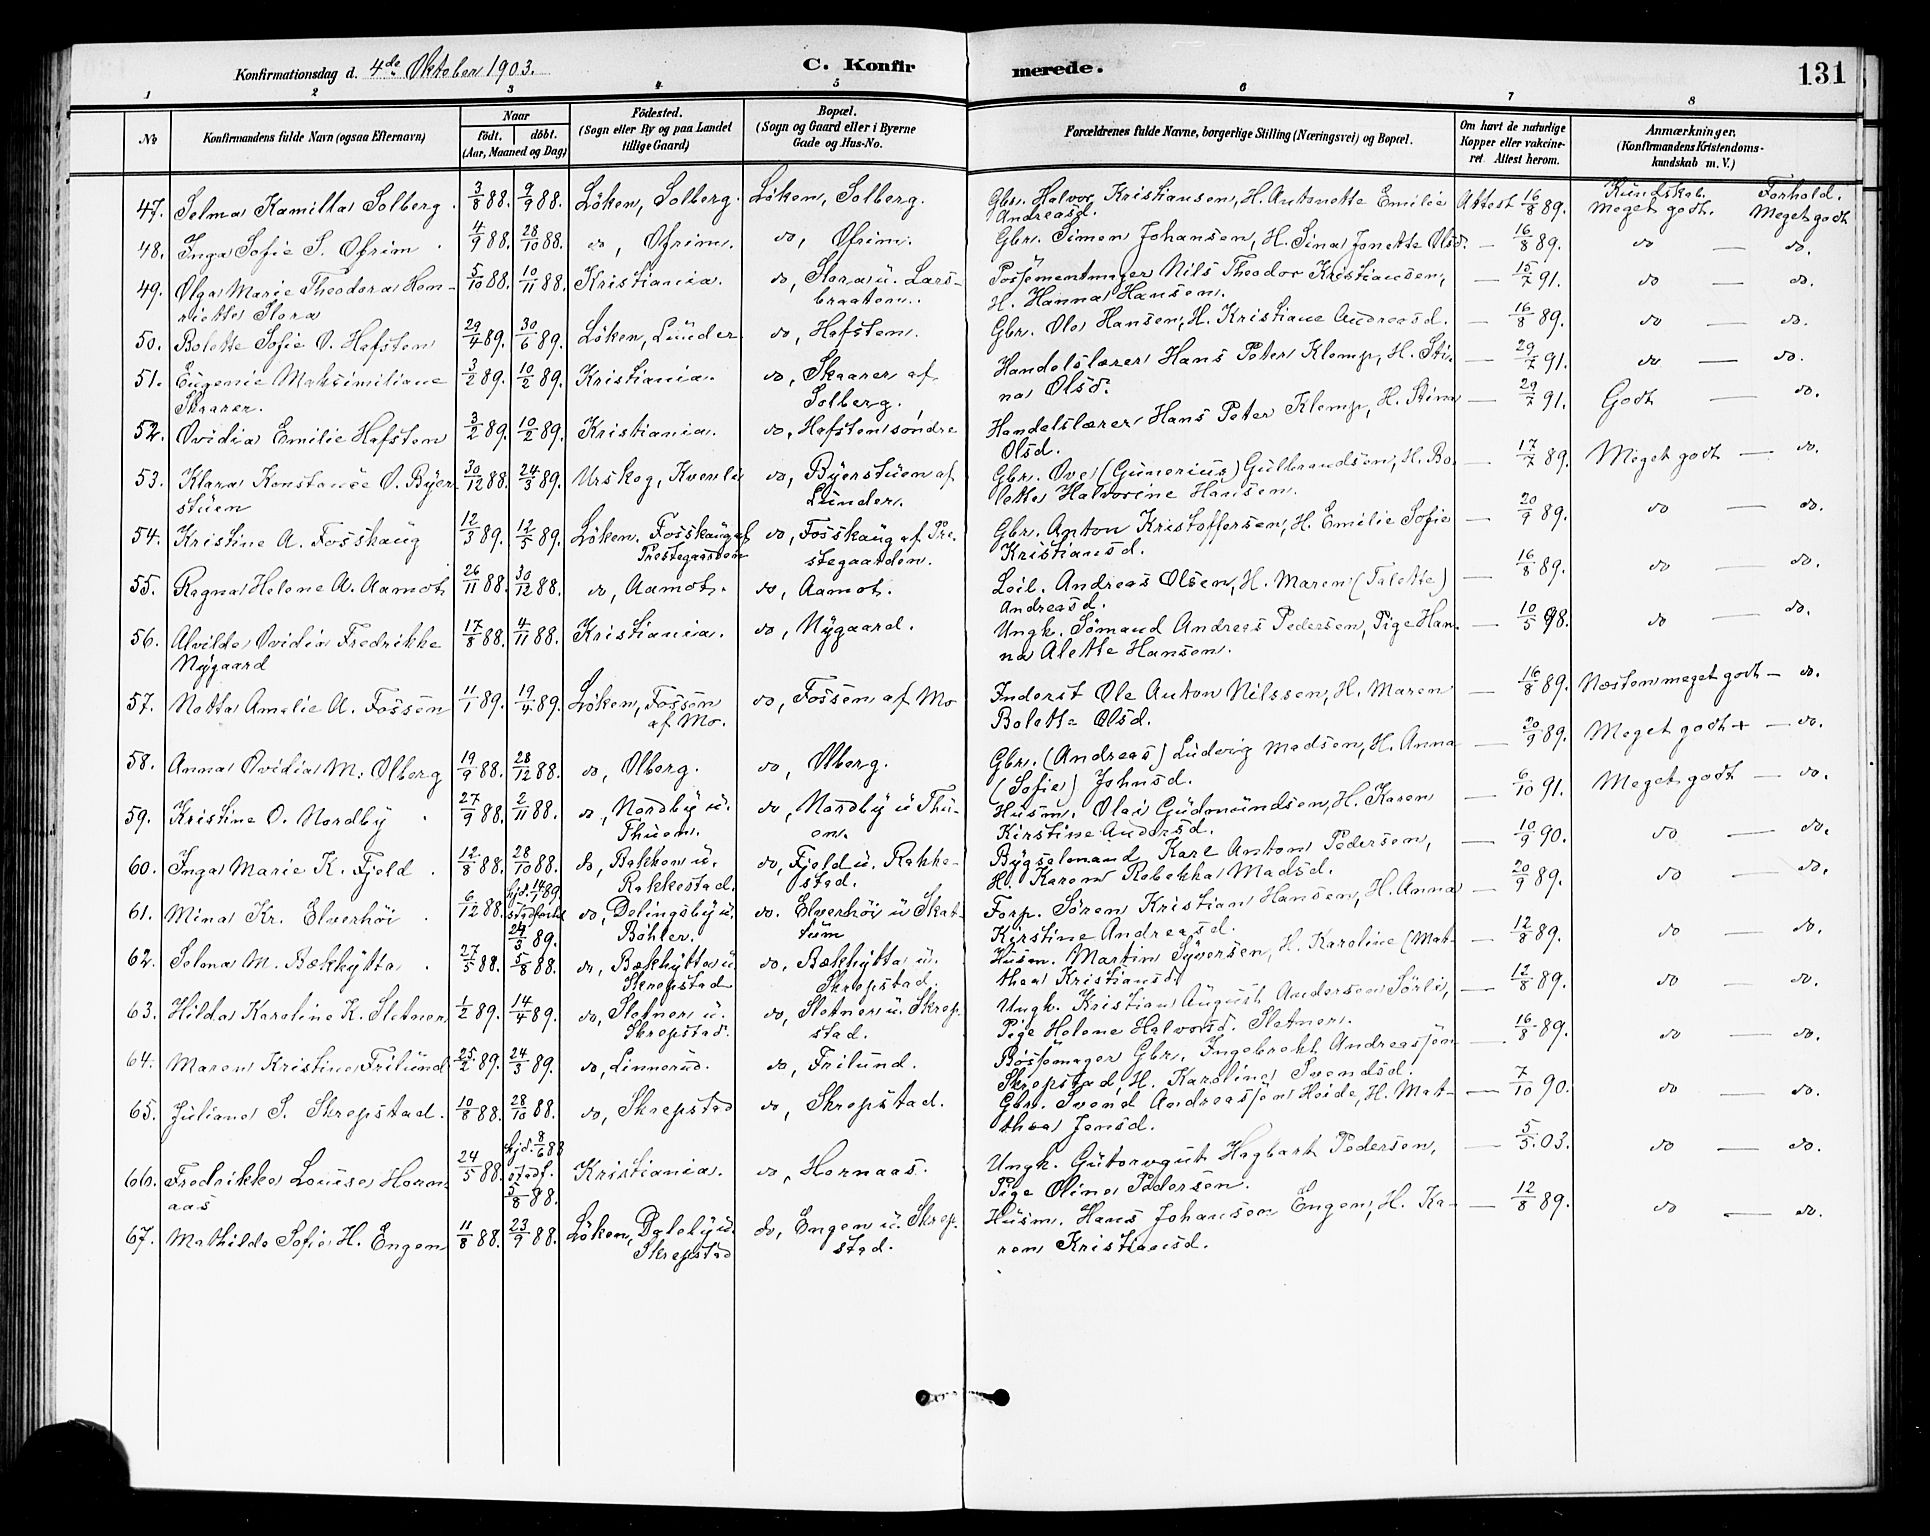 Konfirmationsdag d. 4de Oktober 1903.
C. Konfirmerede.
131
1 2 3 4 5 6 7 8
No
Konfirmandens fulde Navn (ogsaa Efternavn)
Naar
født. døbt.
(Aar, Maaned og Dag)
Födested.
(Sogn eller By og paa Landet
tillige Gaard)
Bopæl.
(Sogn og Gaard eller i Byerne
Gade og Hus-No.
Forældrenes fulde Navne, borgerlige Stilling (Næringsvei) og Bopæl.
Om havt de naturlige
Kopper eller vakcine-
ret. Attest herom.
Anmærkninger.
(Konfirmandens Kristendoms-
kundskab m. V.)
Kundskab. Forhold.
47. Selma Kamilla Solberg. 3/8 88. 9/9 88. Löken, Solberg. Löken, Solberg. Gbr. Halvor Kristiansen, H. Antonette Emilie Attest 16/8 89. Meget godt. Meget godt
Andreasd.
48. Inga Sofie S. Ofrim 4/9 88. 28/10 88. do, Ofrim. do, Ofrim. Gbr. Simen Johansen, H. Sina Jonette Olsd. — 16/8 89. do — do.
49. Olga Marie Theodora Hen- 5/10 88. 10/11 88. Kristiania. do, Slora u. Lars- Possementmager Nils Theodor Kristiansen, — 15/7 91. do — do.
riette Slora braaten. H. Hanna Hansen.
50. Bolette Sofie O. Hafsten 29/4 89. 30/6 89. Löken, Lunder do, Hafsten. Gbr. Ole Hansen, H. Kristiane Andreasd. — 16/8 89. do — do.
51. Eugenie Maksimiliane 3/2 89. 10/2 89. Kristiania. do, Skaarer af Handelslærer Hans Peter Klemp, H. Sti- — 29/7 91. do — do.
Skaarer. Solberg. na Olsd.
52. Ovidia Emilie Hafsten 3/2 89. 10/2 89. Kristiania. do, Hafsten søndre Handelslærer Hans Peter Klemp, H. Stina — 29/7 91. Godt — do.
Olsd.
53. Klara Konstance O. Byer- 30/12 88. 24/3 89. Urskog, Kvenli do, Byerstuen af Gbr. Ove (Gunerius) Gulbrandsen, H. Bo- — 17/7 89. Meget godt — do.
stuen Lunder. lette Halvorine Hansen.
54. Kristine A. Fosskaug 12/3 89. 12/5 89. Löken. Fosskaug af do, Fosskaug af Pre- Gbr. Anton Kristoffersen, H. Emilie Sofie — 20/9 89. do — do.
Prestegaarden stegaarden. Kristiansd.
55. Ragna Helene A. Aamot 26/11 88. 30/12 88. do, Aamot. do, Aamot. Leil. Andreas Olsen, H. Maren (Talette) — 16/8 89. do — do.
Andreasd.
56. Alvilde Ovidia Fredrikke 17/8 88. 4/11 88. Kristiania. do, Nygaard. Ungk. Sømand Andreas Pedersen, Pige Han- — 10/5 98. do — do.
Nygaard na Alette Hansen.
57. Netta Amalie A. Fossen 11/1 89. 19/4 89. Löken, Fossen do, Fossen af Mo Inderst Ole Anton Nilssen, H. Maren — 16/8 89. Næsten meget godt — do.
af Mo. Bolette Olsd.
58. Anna Ovidia M. Olberg 19/9 88. 28/12 88. do, Olberg. do, Olberg. Gbr. (Andreas) Ludvig Madsen, H. Anna — 20/9 89. Meget godt + — do.
(Sofie) Johnsd.
59. Kristine O. Nordby 27/9 88. 2/11 88. do, Nordby u. do, Nordby u Thu- Husm. Olai Gudmundsen, H. Karen — 6/10 91. Meget godt — do.
Thuen. en. Kirstine Andersd.
60. Inga Marie K. Fjeld. 12/8 88. 28/10 88. do, Bakken u. do, Fjeld u. Rakke- Bygselmand Karl Anton Pedersen, — 10/9 90. do — do.
Rakkestad. stad. H. Karen Rebekka Madsd.
61. Mina Kr. Elverhöi 6/12 88. hjd. 14/1 89 do, Delingsby u. do. Elverhöi u Skat- Forp. Sören Kristian Hansen, H. Anna — 20/9 89. do — do.
24/3 89. Böhler. tum Kirstine Andreasd.
62. Selma M. Bækhytta 27/5 88. 5/8 88. do, Bækhytta u. do, Bækhytta u. Husm. Martin Syversen, H. Karoline (Mat- — 12/8 89. do — do.
Skrepstad Skrepstad. thea Kristiansd.
63. Hilda Karoline K. Sletner 1/2 89. 14/4 89. do, Sletner u. do, Sletner u. Skrep- Ungk. Kristian August Andersen Sörli, — 12/8 89. do — do.
Skrepstad. stad. Pige Helene Halvorsd. Sletner.
64. Maren Kristine Frilund 25/2 89. 24/3 89. do, Linnerud. do, Frilund. Bössemager Gbr. Ingebrekt Andreassen — 16/8 89. do — do.
Skrepstad, H. Karoline Svendsd.
65. Juliane S. Skrepstad. 10/8 88. 28/10 88. do, Skrepstad do, Skrepstad. Gbr. Svend Andreassen Heide, H. Mat- — 7/10 90. do — do.
thea Jensd.
66. Fredrikke Louise Hern- 24/5 88. hjd. 8/6 88 Kristiania. do, Hernaas. Ungk. Gutorvgut Hagbart Pedersen, — 5/5 03. do — do.
aas stadf. 5/8 88. Pige Oline Pedersen.
67. Mathilde Sofie H. Engen 11/8 88. 23/9 88. Löken, Daleby u. do, Engen u. Skrep- Husm. Hans Johansen Engen, H. Ka- — 12/8 89. do — do.
Skrepstad stad. ren Kristiansd.